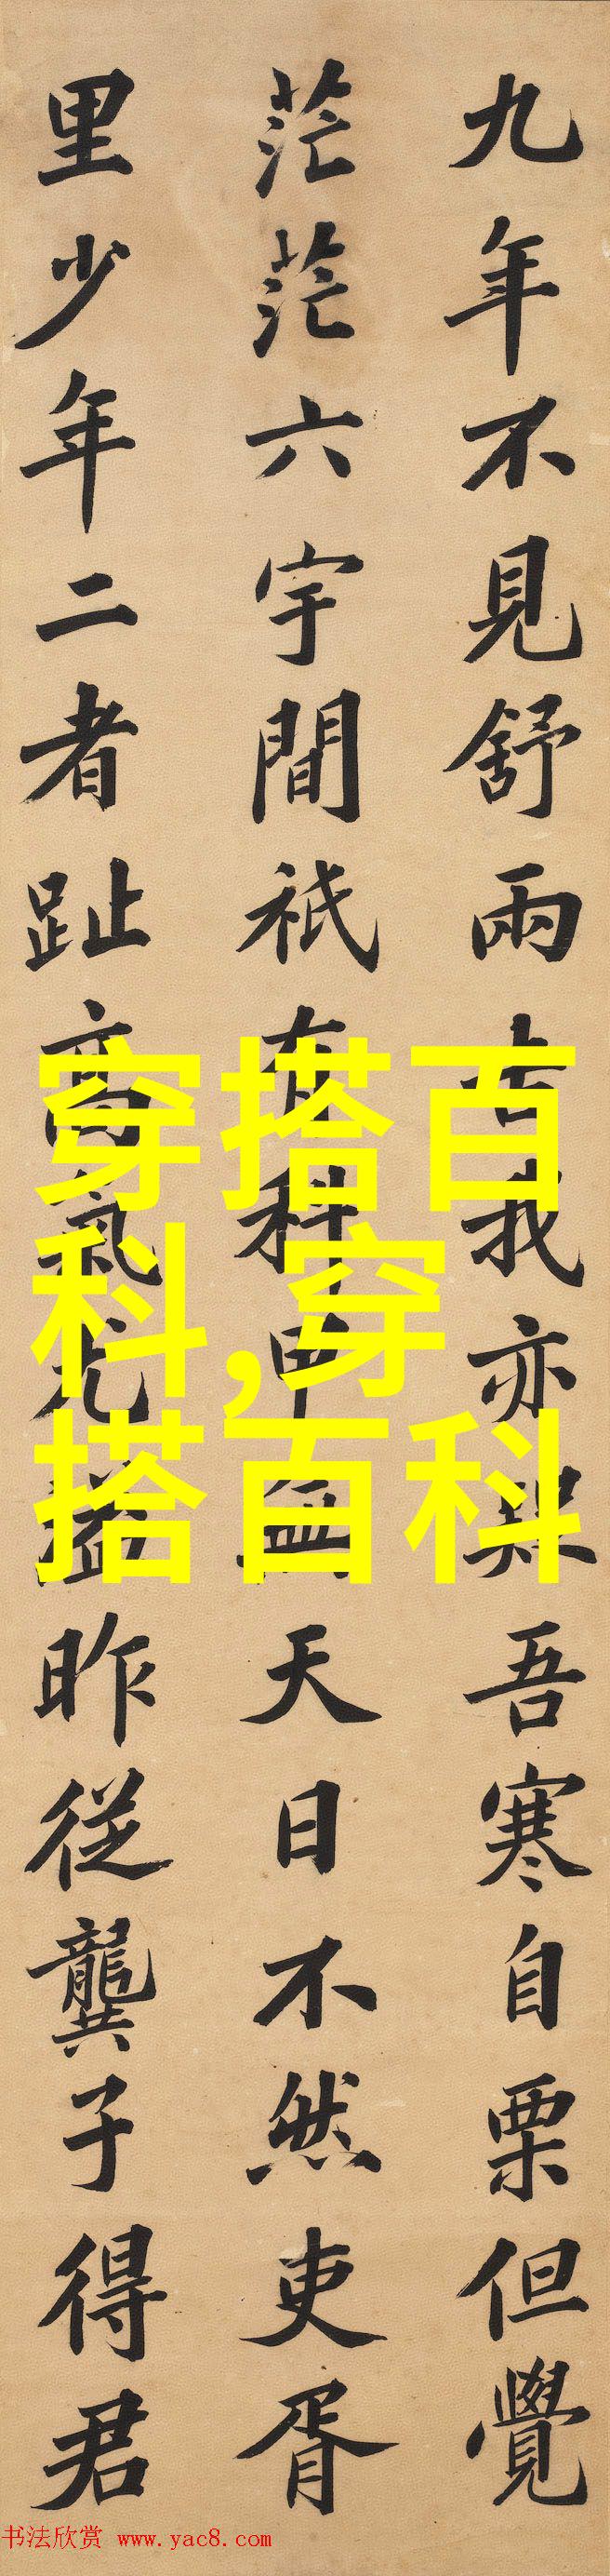 九年不見舒兩吉我亦與吾寒自栗但覺
茫茫六宇間祇有科甲無天日不然吏胥
里少年二者趾高氣尤溢昨從龔子得君
穿搭百
科,穿
搭百科
书法欣赏 www.yac8.com